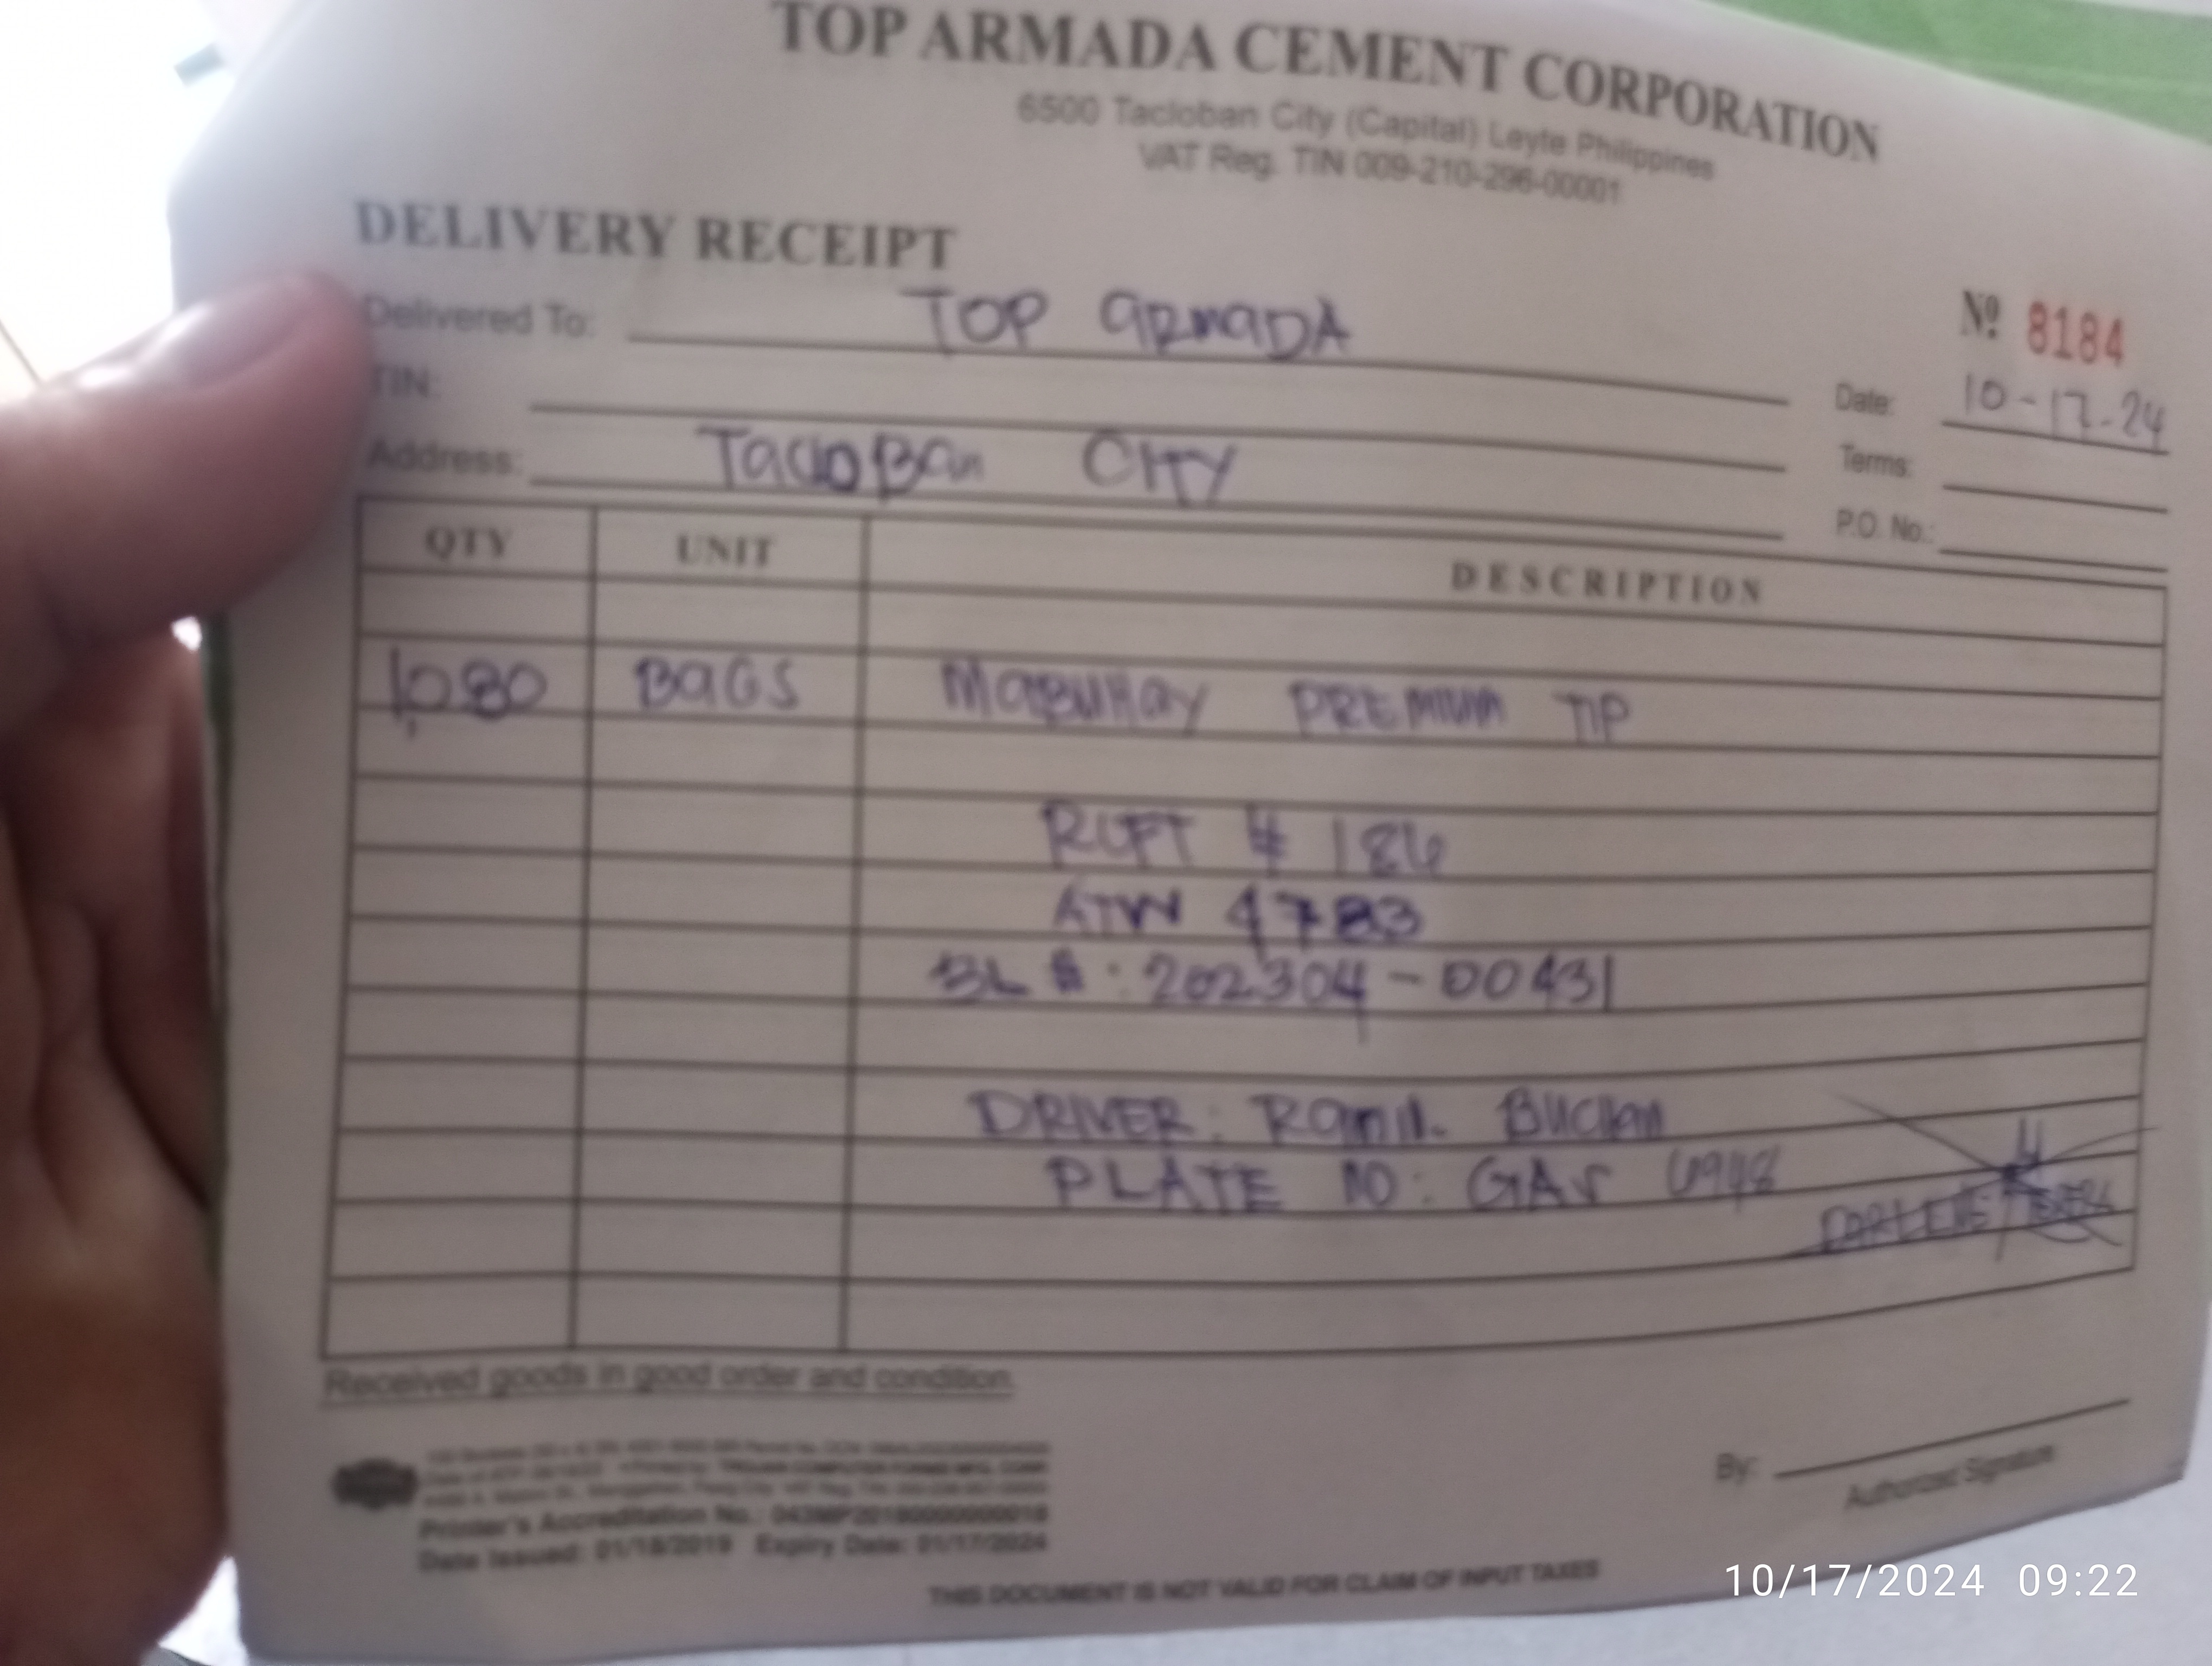 TOP ARMADA CEMENT CORPORATION
6500 Tacloban City (Capital) Leyte Philippines
VAT Reg. TIN 009-210-296-00001
DELIVERY RECEIPT
Nº 8184
Delivered To: TOP ARMADA
Date: 10-17-24
TIN:
Terms:
Address: TacloBan CITY
P.O. No.:
QTY UNIT DESCRIPTION
1,080 BAGS MaBuHay PREMIUM TIP
# 186
ATW 4783
BL #: 202304-00431
DRIVER: Ramil
PLATE NO: GAS 6948
DARLENE
Received goods in good order and condition.
By:
Authorized Signature
Printer's Accreditation No.:
Date Issued: 01/18/2019 Expiry Date: 01/17/2024
THIS DOCUMENT IS NOT VALID FOR CLAIM OF INPUT TAXES
10/17/2024 09:22